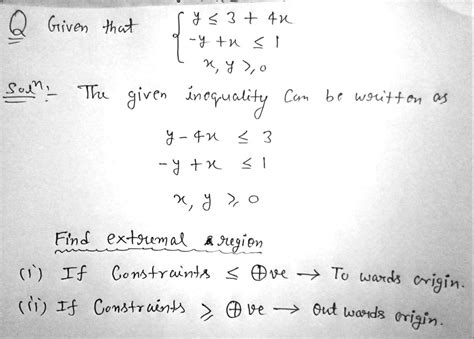 Q Given that y ≤ 3 + 4x
-y + x ≤ 1
x, y ≥, 0
Solⁿ:- The given inequality can be written as
y - 4x ≤ 3
-y + x ≤ 1
x, y ≥ 0
Find extremal region
(i) If Constraints ≤ ⊕ve → To wards origin.
(ii) If Constraints ≥ ⊕ve → Out wards origin.